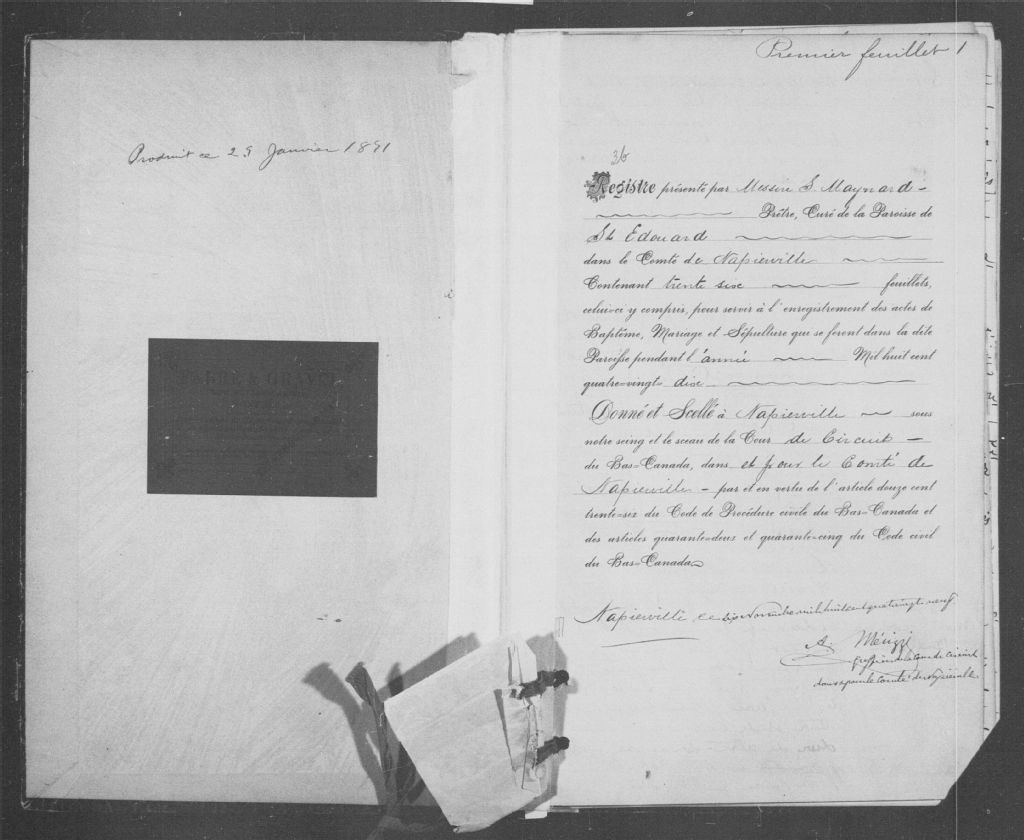 Produit ce 29 Janvier 1891
Premier feuillet 1
36
Registre présenté par Messire S. Maynard
Prêtre, Curé de la Paroisse de
St Edouard
dans le Comté de Napierville
Contenant trente six feuillets,
celui-ci y compris, pour servir à l'enregistrement des actes de
Baptême, Mariage et Sépulture qui se feront dans la dite
Paroisse pendant l'année Mil huit cent
quatre-vingt dix
Donné et Scellé à Napierville sous
notre seing et le sceau de la Cour de Circuit
du Bas-Canada, dans et pour le Comté de
Napierville - par et en vertu de l'article douze cent
trente-six du Code de Procédure civile du Bas-Canada et
des articles quarante-deux et quarante-cinq du Code civil
du Bas-Canada
Napierville ce dix Novembre mil huit cent quatre vingt neuf
A. Mérizzi
Greffier de la Cour de Circuit
dans & pour le Comté de Napierville